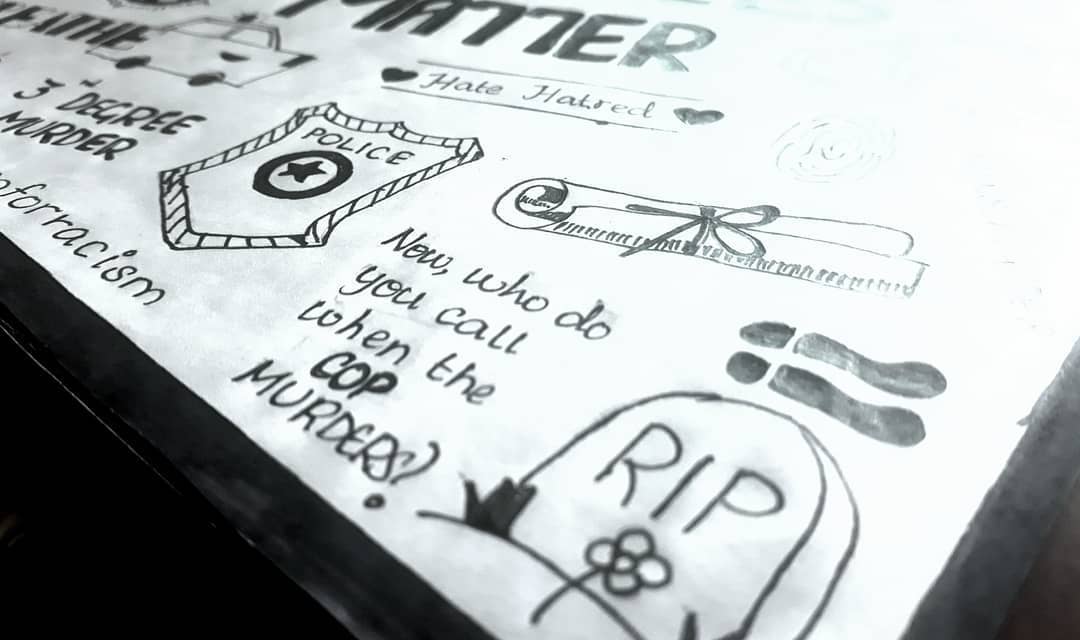 MATTER
Hate Hatred
3 DEGREE
MURDER
POLICE
forracism
Now, who do
you call
when the
COP
MURDERS?
RIP